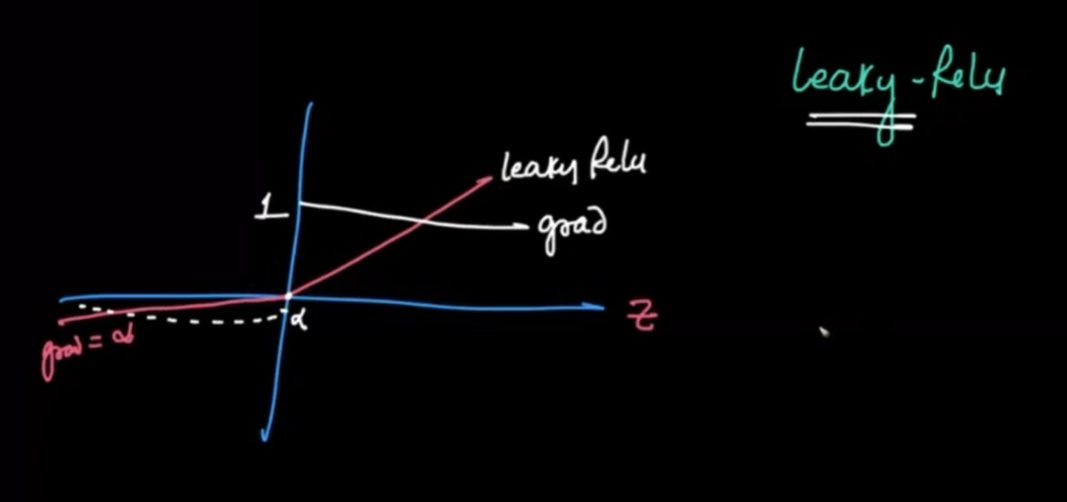 Leaky-Relu
leaky Relu
1
grad
α
z
grad = α